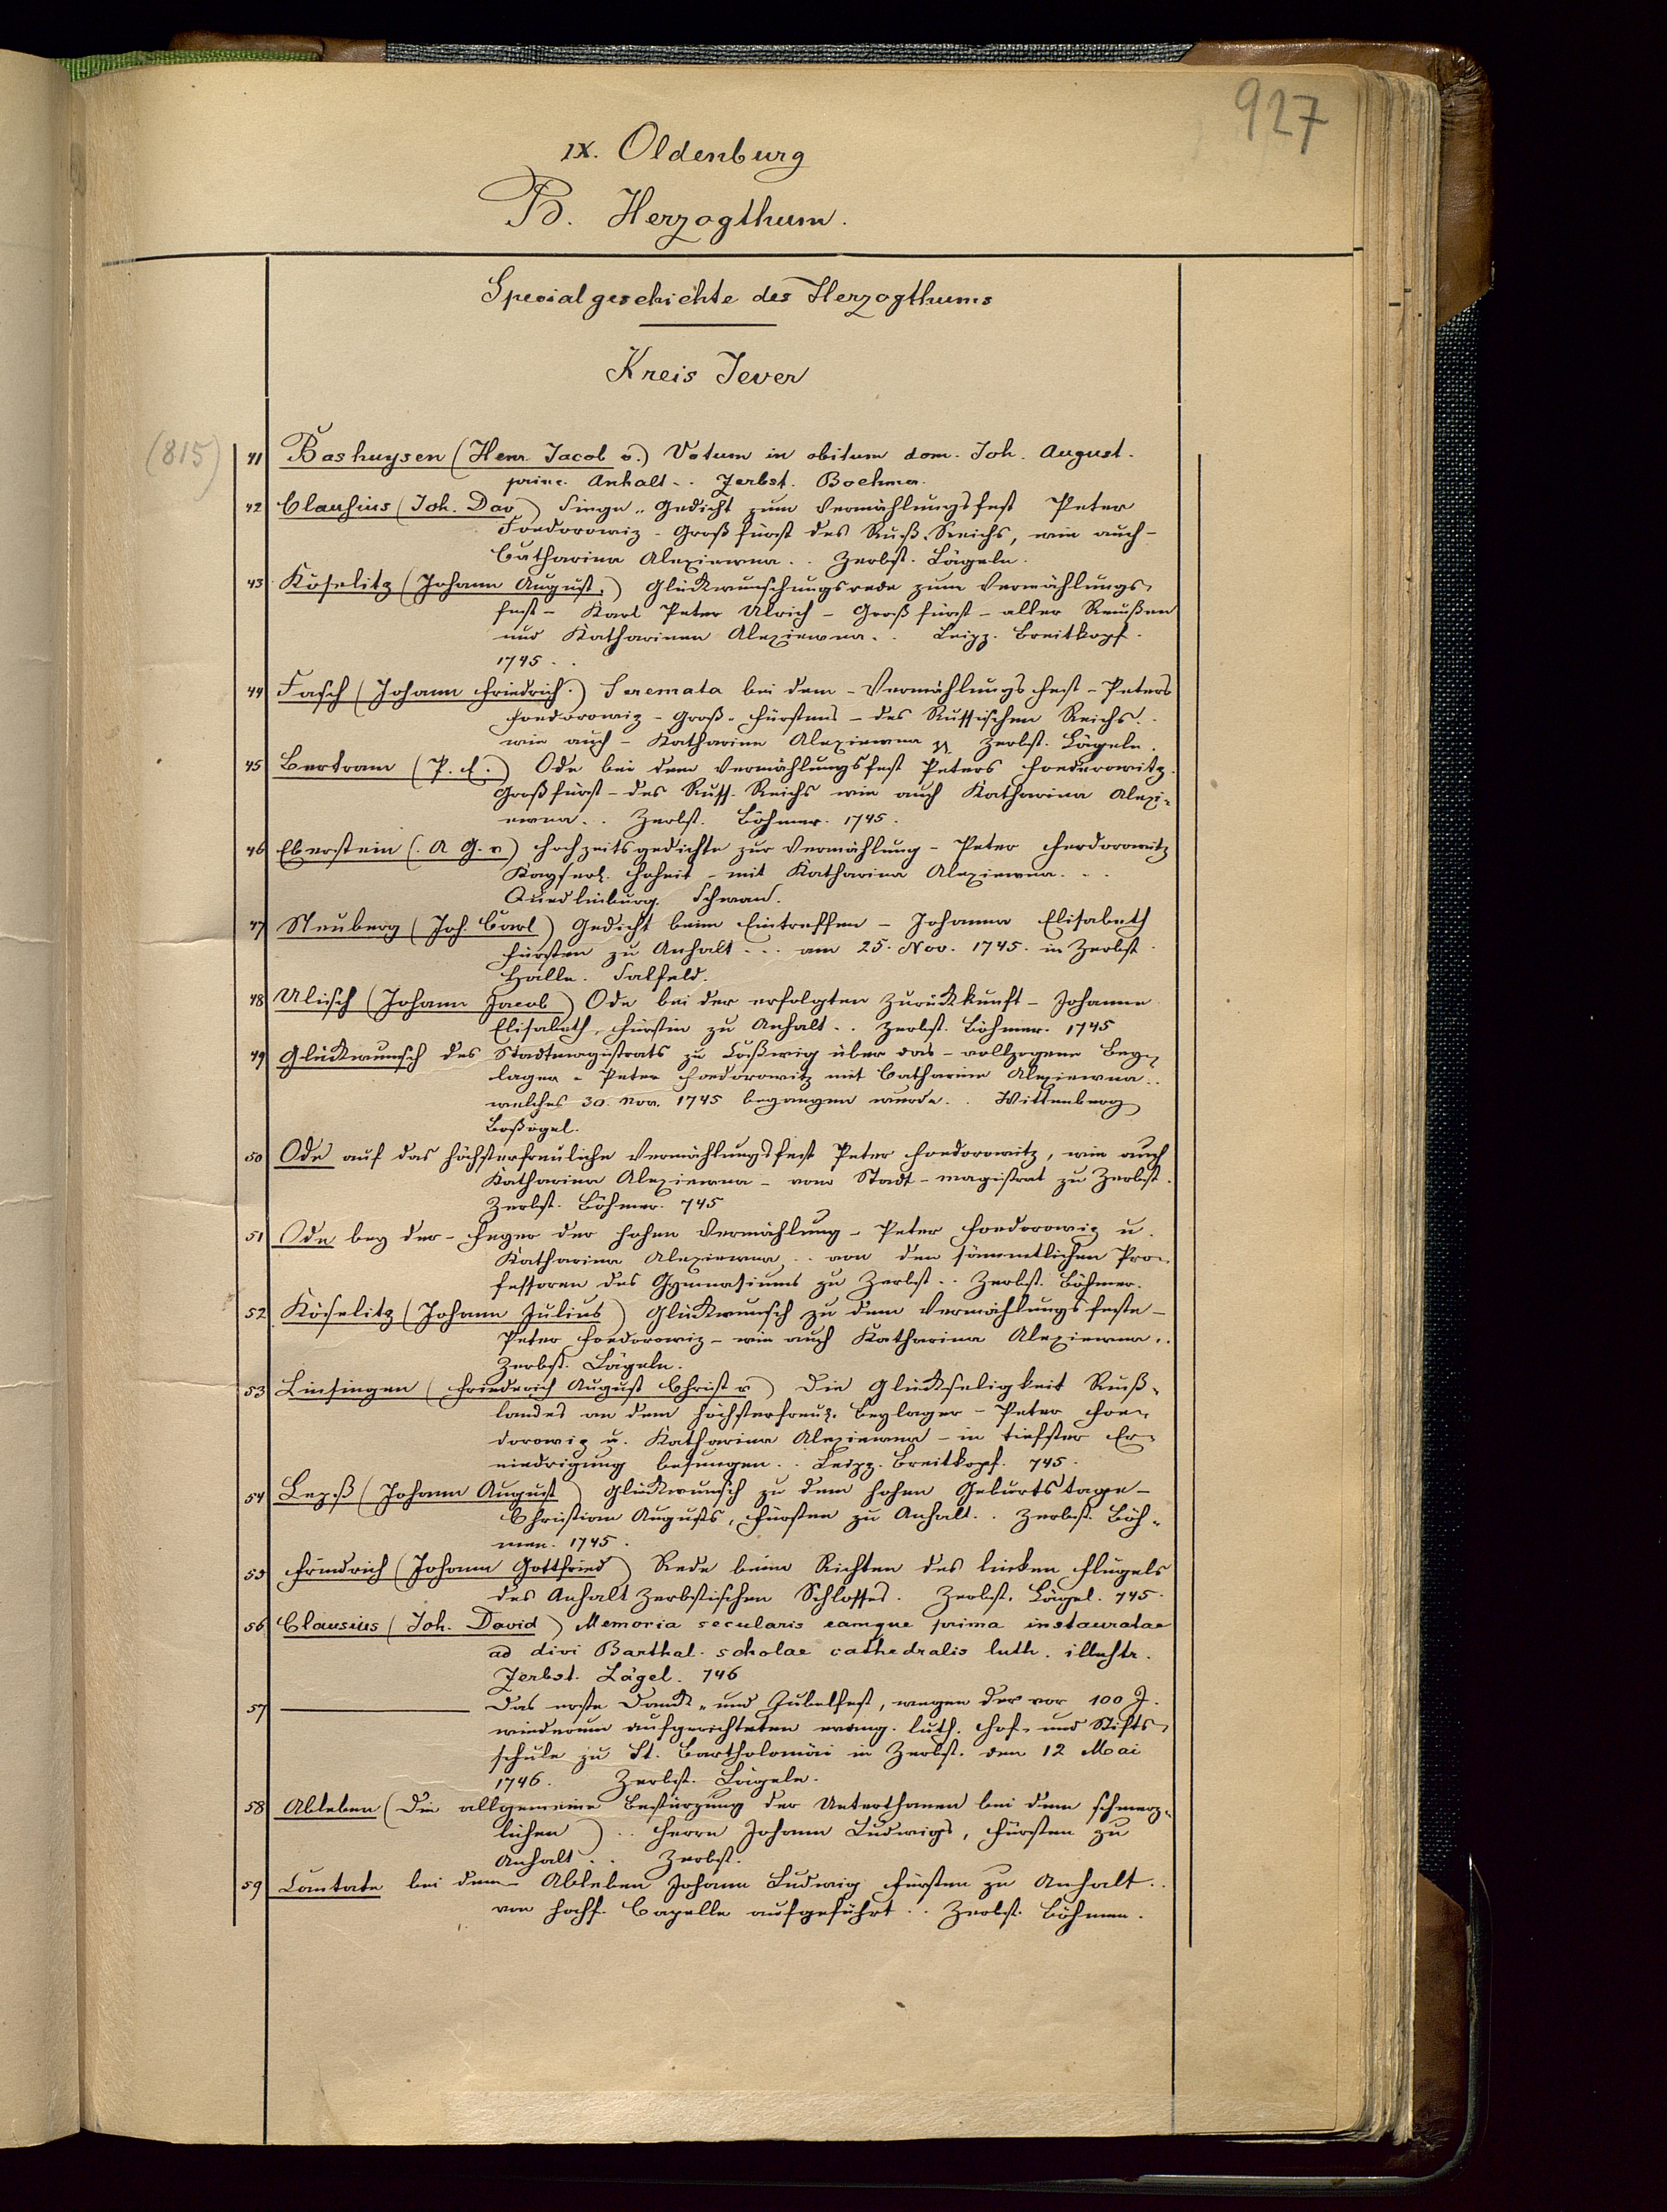 927
IX. Oldenburg
B. Herzogthum.
Specialgeschichte des Herzogthums
Kreis Jever
(815)
41 Bashuysen (Henr. Jacob v.) Votum in obitum dom. Joh. August.
princ. Anhalt.. Zerbst. Boehmer.
42 Clausius (Joh. Dav.) Singe- Gedicht zum Vermählungsfest Peter
Foedorowiz - Großfürst des Ruß. Reichs, wie auch -
Catharina Alexiewna.. Zerbst. Lägeln.
43 Köselitz (Johann August.) Glückwunschungsrede zum Vermählungs-
fest - Karl Peter Ulrich - Großfürst - aller Reußen
und Katharinen Alexiewna.. Leipz. Breitkopf.
1745..
44 Fasch (Johann Friedrich.) Serenata bei dem - Vermählungs fest - Peters
Foedorowiz - Groß-Fürstens - des Russischen Reichs..
wie auch - Katharina Alexiewna Zerbst. Lägeln.
45 Bertram (P. E.) Ode bei dem Vermählungsfest Peters Foedorowitz.
Großfürst - des Russ. Reichs wie auch Katharina Alexi-
ewna.. Zerbst. Böhmer. 1745.
46 Eberstein (. A G. v) Hochzeitsgedichte zur Vermählung - Peter Feodorowitz
Kayserl. Hoheit - mit Katharina Alexiewna...
Quedlinburg. Schwan.
47 Neuberg (Joh. Carl) Gedicht beim Eintreffen - Johanna Elisabeth
Fürsten zu Anhalt... am 25. Nov. 1745. in Zerbst.
Halle. Salfeld.
48 Ulisch (Johann Jacob) Ode bei der erfolgten Zurückkunft - Johanne
Elisabeth, Fürstin zu Anhalt.. Zerbst. Böhmer. 1745
49 Glückwunsch des Stadtmagistrats zu Coßwig über das - vollzogene Bey-
lager - Peter Foedorowitz mit Catharina Alexiewna..
welches 30. Nov. 1745 begangen wurde.. Wittenberg
50 Ode auf das höchsterfreuliche Vermählungsfest Peter Foedorowitz, wie auch
Katharina Alexiewna - vom Stadt-magistrat zu Zerbst.
Zerbst. Böhmer. 745
51 Ode bey der - Feyer der hohen Vermählung - Peter Foedorowiz u.
Katharina Alexiewna.. von den sämmtlichen Pro-
fessoren des Gymnasiums zu Zerbst.. Zerbst. Böhmer.
52 Köselitz (Johann Julius) Glückwunsch zu dem Vermählungsfeste -
Peter Foedorowiz - wie auch Katharina Alexiewna..
Zerbst. Lägeln.
53 Linsingen (Friederich August Christ v) Die Glückseligkeit Ruß-
landes an dem höchsterfreul. Beylager - Peter Foe-
dorowiz u. Katharina Alexiewna - in tiefster Er-
niedrigung besungen.. Leipz. Breitkopf. 745.
54 Lezß (Johann August) Glückwunsch zu dem hohen Geburtstage -
Christian Augusts, Fürsten zu Anhalt.. Zerbst. Böh-
men. 1745.
55 Friedrich (Johann Gottfried) Rede beim Richten des linken Flügels
des Anhalt Zerbstischen Schlosses. Zerbst. Lägel. 745.
56 Clausius (Joh. David) Memoria secularis eamque prima instauratae
ad divi Barthal. scholae cathedralis luth. illustr.
Zerbst. Lägel. 746
57 ——— Das erste Danck- und Jubelfest, wegen der vor 100 J.
wiederum aufgerichteten evang. luth. Hof- und Stifts-
schule zu St. Bartholomäi in Zerbst. den 12 Mai
1746. Zerbst. Lägeln.
58 Ableben (Die allgemeine Bestürzung der Unterthanen bei dem schmerz-
lichen).. Herrn Johann Ludwigs, Fürsten zu
Anhalt.. Zerbst.
59 Cantate bei dem - Ableben Johann Ludwig Fürsten zu Anhalt..
von Hochf. Capelle aufgeführt.. Zerbst. Böhmen.